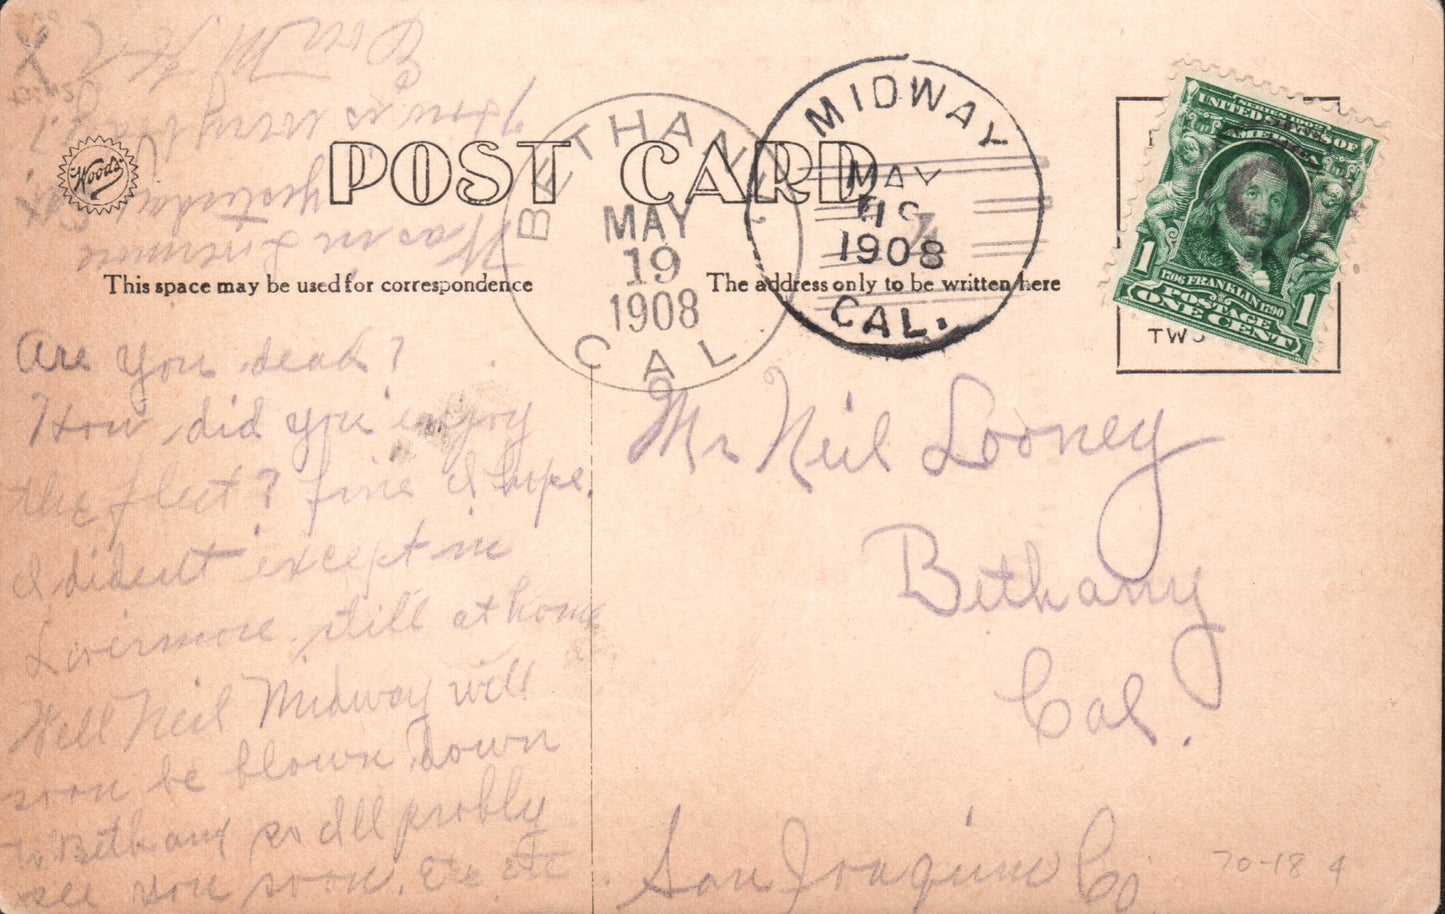 POST CARD
Woods
This space may be used for correspondence
The address only to be written here
BETHANY
MAY
19
1908
CAL
MIDWAY
MAY
1908
CAL.
SERIES 1902
UNITED STATES OF
AMERICA
1 1
1706 FRANKLIN 1790
POSTAGE
ONE CENT
TWO
Are you dead?
How did you enjoy
the fleet? fine I hope.
I didn't except in
Livermore. still at home
Well Neil Midway will
soon be blown down
to Bethany so Ill probly
see you soon. Etc etc
Was in Livermore
yesterday
How is every
Mr Neil Looney
Bethany
Cal.
San Joaquin Co
70-18 4